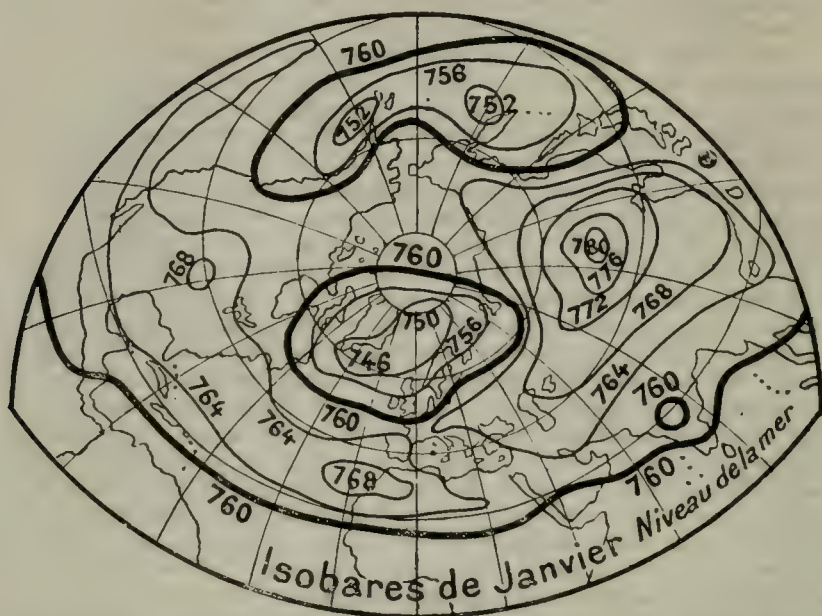 760
756
752
752
768
760
780
776
772
768
750
756
746
764
764
764
760
760
768
760
760
Isobares de Janvier Niveau de la mer